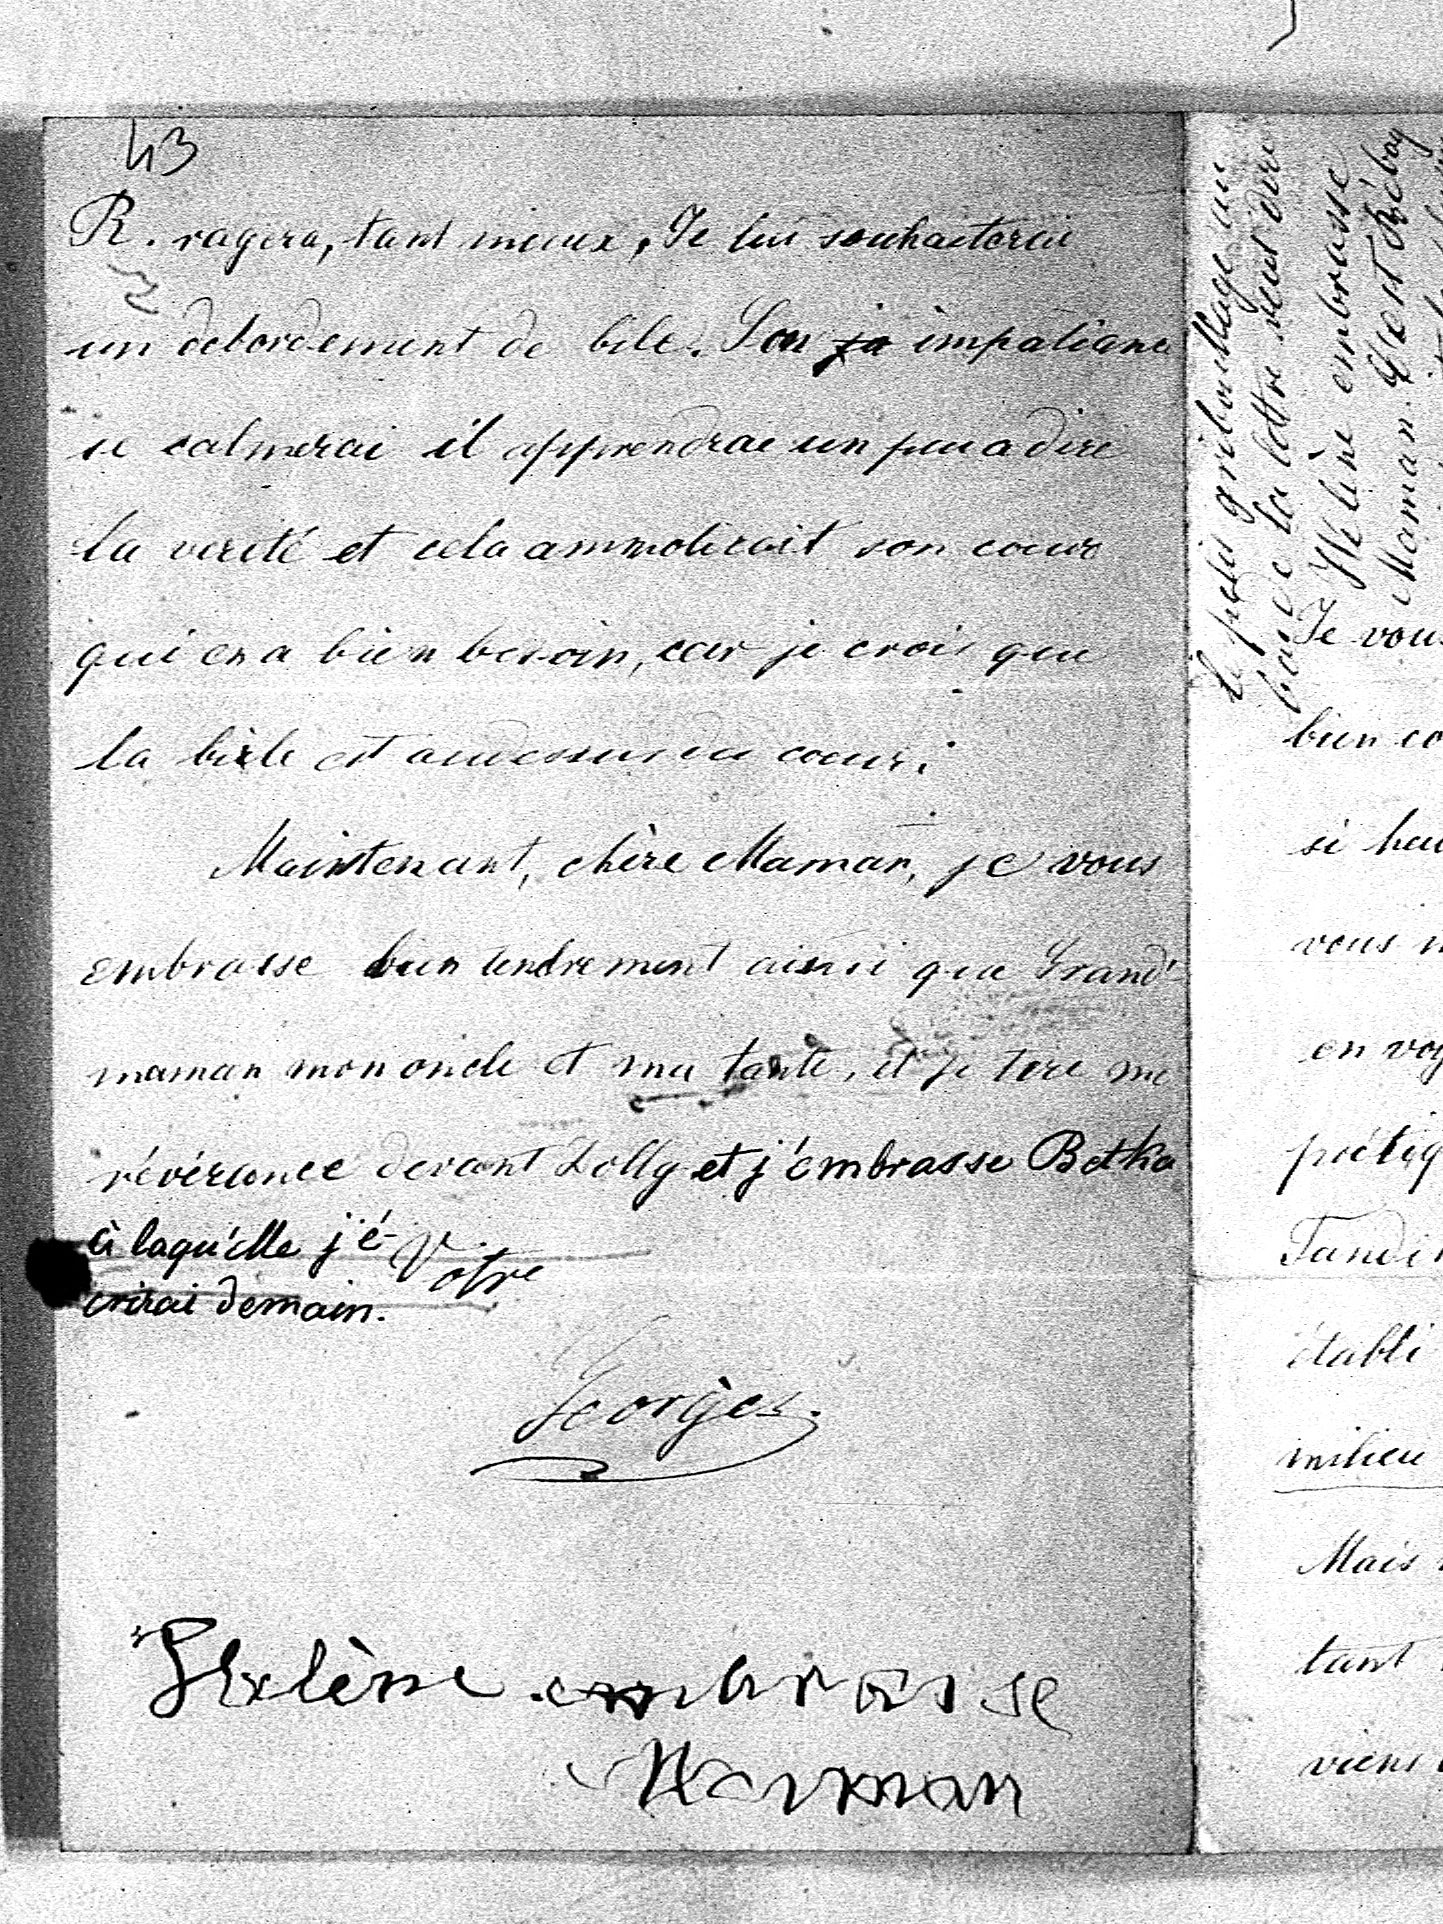 43
R. ragera, tant mieux, Je lui souhaiterai
un debordement de bile. Son ja impatiance
se calmerai il apprendrae un peu a dire
la verité et cela ammolirait son coeur
qui en a bien besoin, car je crois que
la bile est audessus du coeur.
Maintenant, chère Maman, je vous
embrasse bien tendrement ainsi que Grand'
maman mon oncle et ma tante, et je tire me
révérance devant Lolly et j'émbrasse Betka
à laqu'elle j'é-
crirai demain.
Votre
Georges.
Hélène embrasse
Maman
Le petit gribouillage au
bas de la lettre veut dire
Hélène embrasse
Maman. C'est Béboy
Je vous
bien co
si heu
vous n
en voy
poétiq
Tandi
établi
milieu
Mais
tant
viens